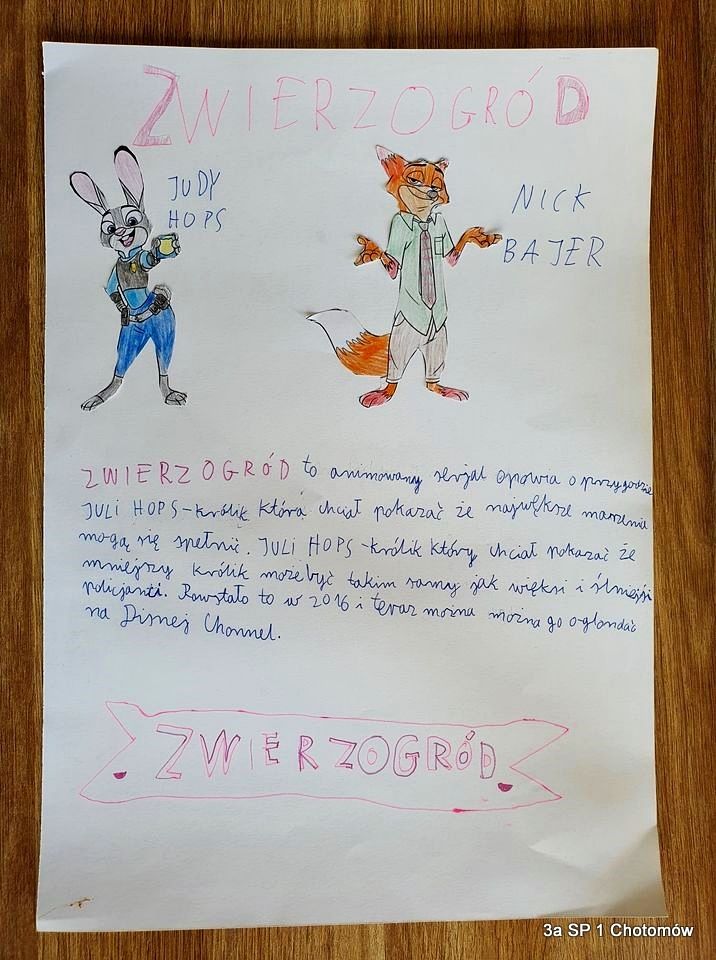 ZWIERZOGRÓD
JUDY
HOPS
NICK
BAJER
ZWIERZOGRÓD to animowany serjal opowia o przygodzie
JULI HOPS-królik która chciał pokazać że największe marzenia
mogą się spełnić. JULI HOPS-królik który chciał pokazać że
mniejszy królik może być takim samy jak więksi i silniejśi
policjanti. Powstało to w 2016 i teraz można można go oglondać
na Disnej Channel.
ZWIERZOGRÓD
3a SP 1 Chotomów